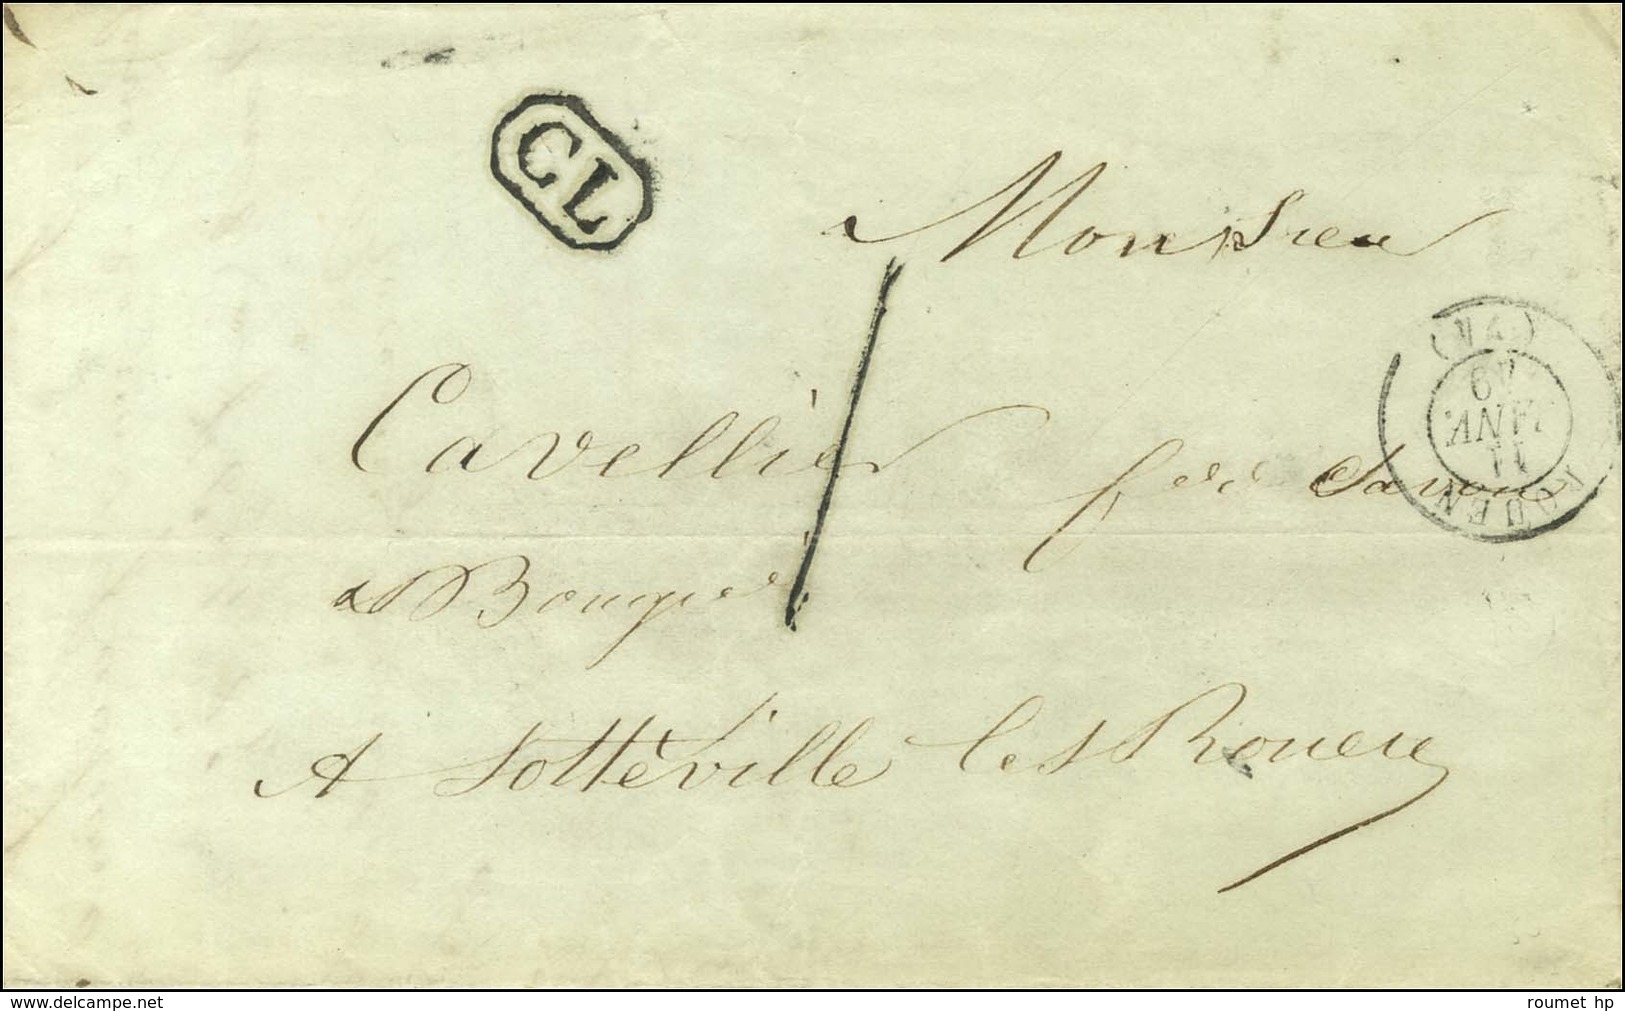 CL
Monsieu
Cavellier
Savon
Bougie
A Sotteville les Rouen
ROUEN
11
JANV.
49
(74)
www.delcampe.net
roumet hp